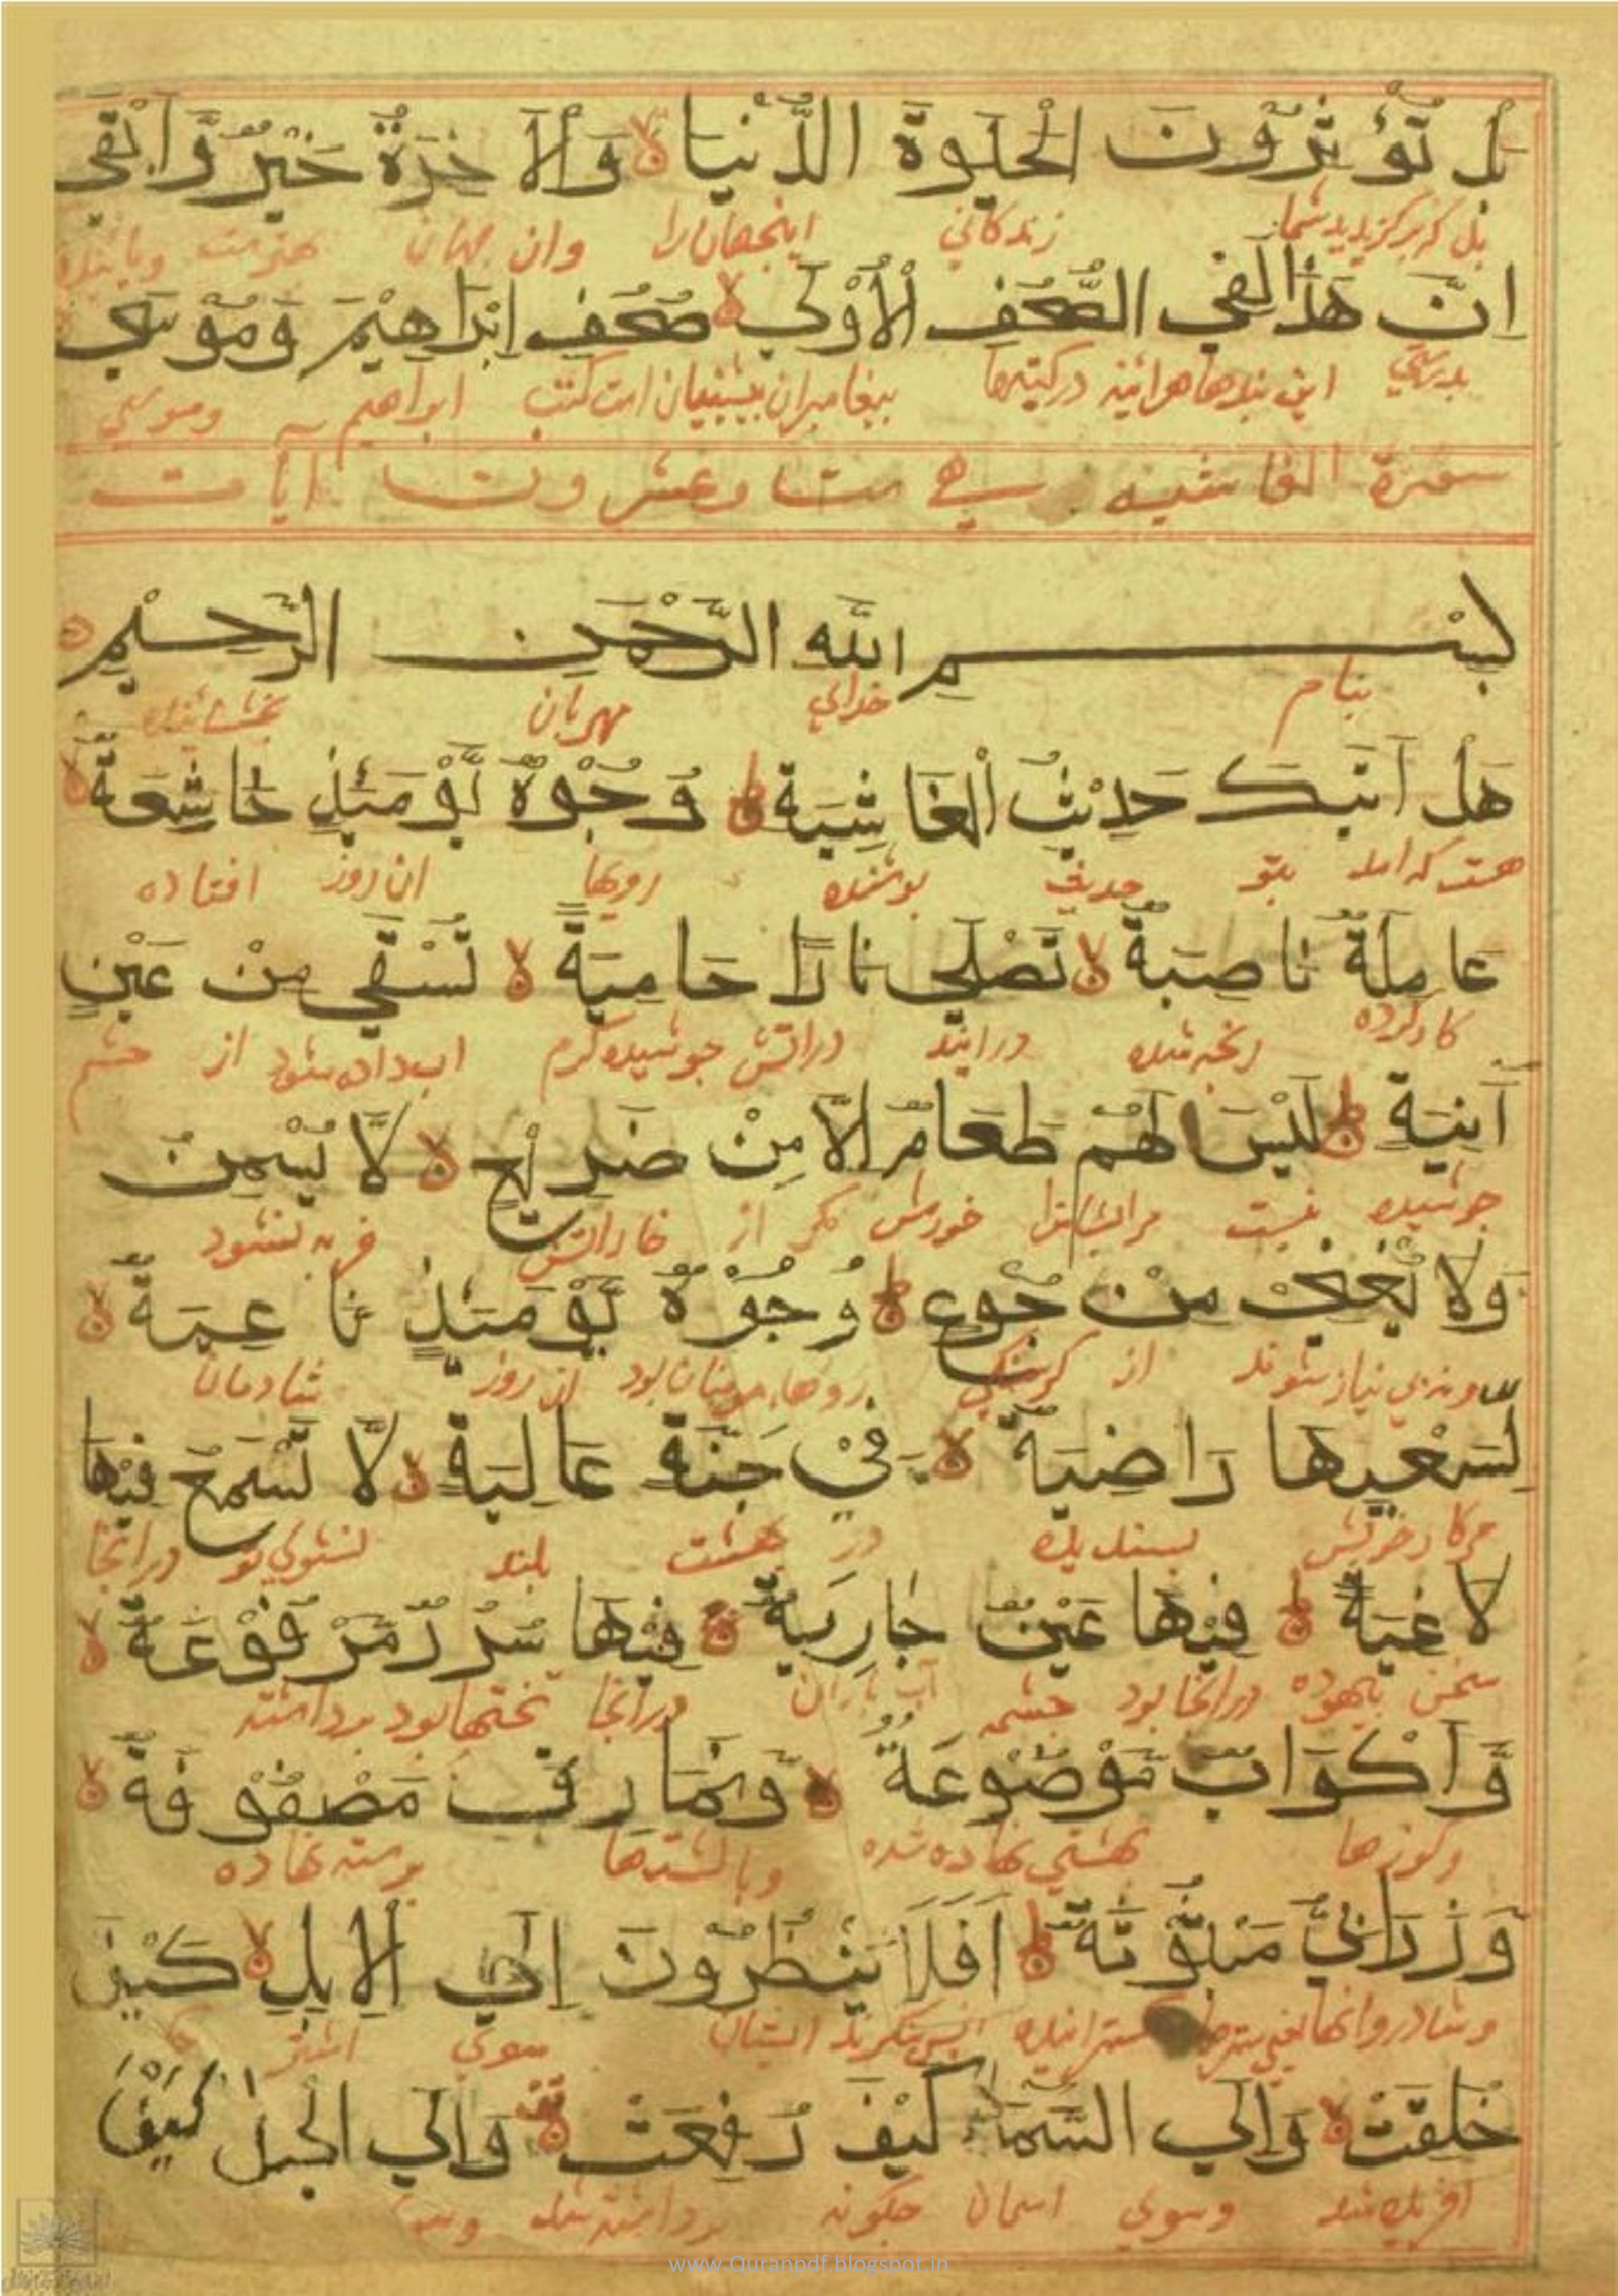 بَلْ تُؤْثِرُوْنَ الْحَيٰوةَ الدُّنْيَا وَالْاٰخِرَةُ خَيْرٌ وَّاَبْقٰى
زندكاني اينجهان را وان جهان
اِنَّ هٰذَا لَفِي الصُّحُفِ الْاُوْلٰى صُحُفِ اِبْرَاهِيْمَ وَمُوْسٰى
بدرستي اين پندها هراينه در كتبها پيغامبران پيشينيان است كتب ابراهيم وموسي
سورة الغاشيه هي ست وعشرون آيات
بِسْمِ اللهِ الرَّحْمٰنِ الرَّحِيْمِ
بنام خداي مهربان بخشاينده
هَلْ اَتٰىكَ حَدِيْثُ الْغَاشِيَةِ وُجُوْهٌ يَّوْمَئِذٍ خَاشِعَةٌ
هست كه امد بتو حديث پوشنده رويها ان روز افتاده
عَامِلَةٌ نَاصِبَةٌ تَصْلٰى نَارًا حَامِيَةً تُسْقٰى مِنْ عَيْنٍ
كاركرده رنجه شده درايند دراتش جوشيده كرم اب داده شود از چشم
آنِيَةٍ لَيْسَ لَهُمْ طَعَامٌ اِلَّا مِنْ ضَرِيْعٍ لَّا يُسْمِنُ
جوشيده نيست مرايشانرا خورش مكر از خار اتش فربه نشود
وَلَا يُغْنِيْ مِنْ جُوْعٍ وُجُوْهٌ يَّوْمَئِذٍ نَاعِمَةٌ
ونه بي نياز شوند از كرسنكي رويها مومنان بود ان روز شادمان
لِسَعْيِهَا رَاضِيَةٌ فِيْ جَنَّةٍ عَالِيَةٍ لَّا تَسْمَعُ فِيْهَا
پسنديده در بهشت بلند نشنوي تو درانجا
لَاغِيَةً فِيْهَا عَيْنٌ جَارِيَةٌ فِيْهَا سُرُرٌ مَّرْفُوْعَةٌ
سخن بيهوده درانجا بود چشمه آب درانجا تختها بود برداشته
وَّاَكْوَابٌ مَّوْضُوْعَةٌ وَّنَمَارِقُ مَصْفُوْفَةٌ
وكوزها بهشتي نهاده شده وبالشتها نهاده
وَزَرَابِيُّ مَبْثُوْثَةٌ اَفَلَا يَنْظُرُوْنَ اِلَى الْاِبِلِ كَيْفَ
وشادروانها يعني ايشان سوي اشتر
خُلِقَتْ وَاِلَى السَّمَاءِ كَيْفَ رُفِعَتْ وَاِلَى الْجِبَالِ كَيْفَ
افريده شد وسوي اسمان چكونه برداشته شد
www.Quranpdf.blogspot.in